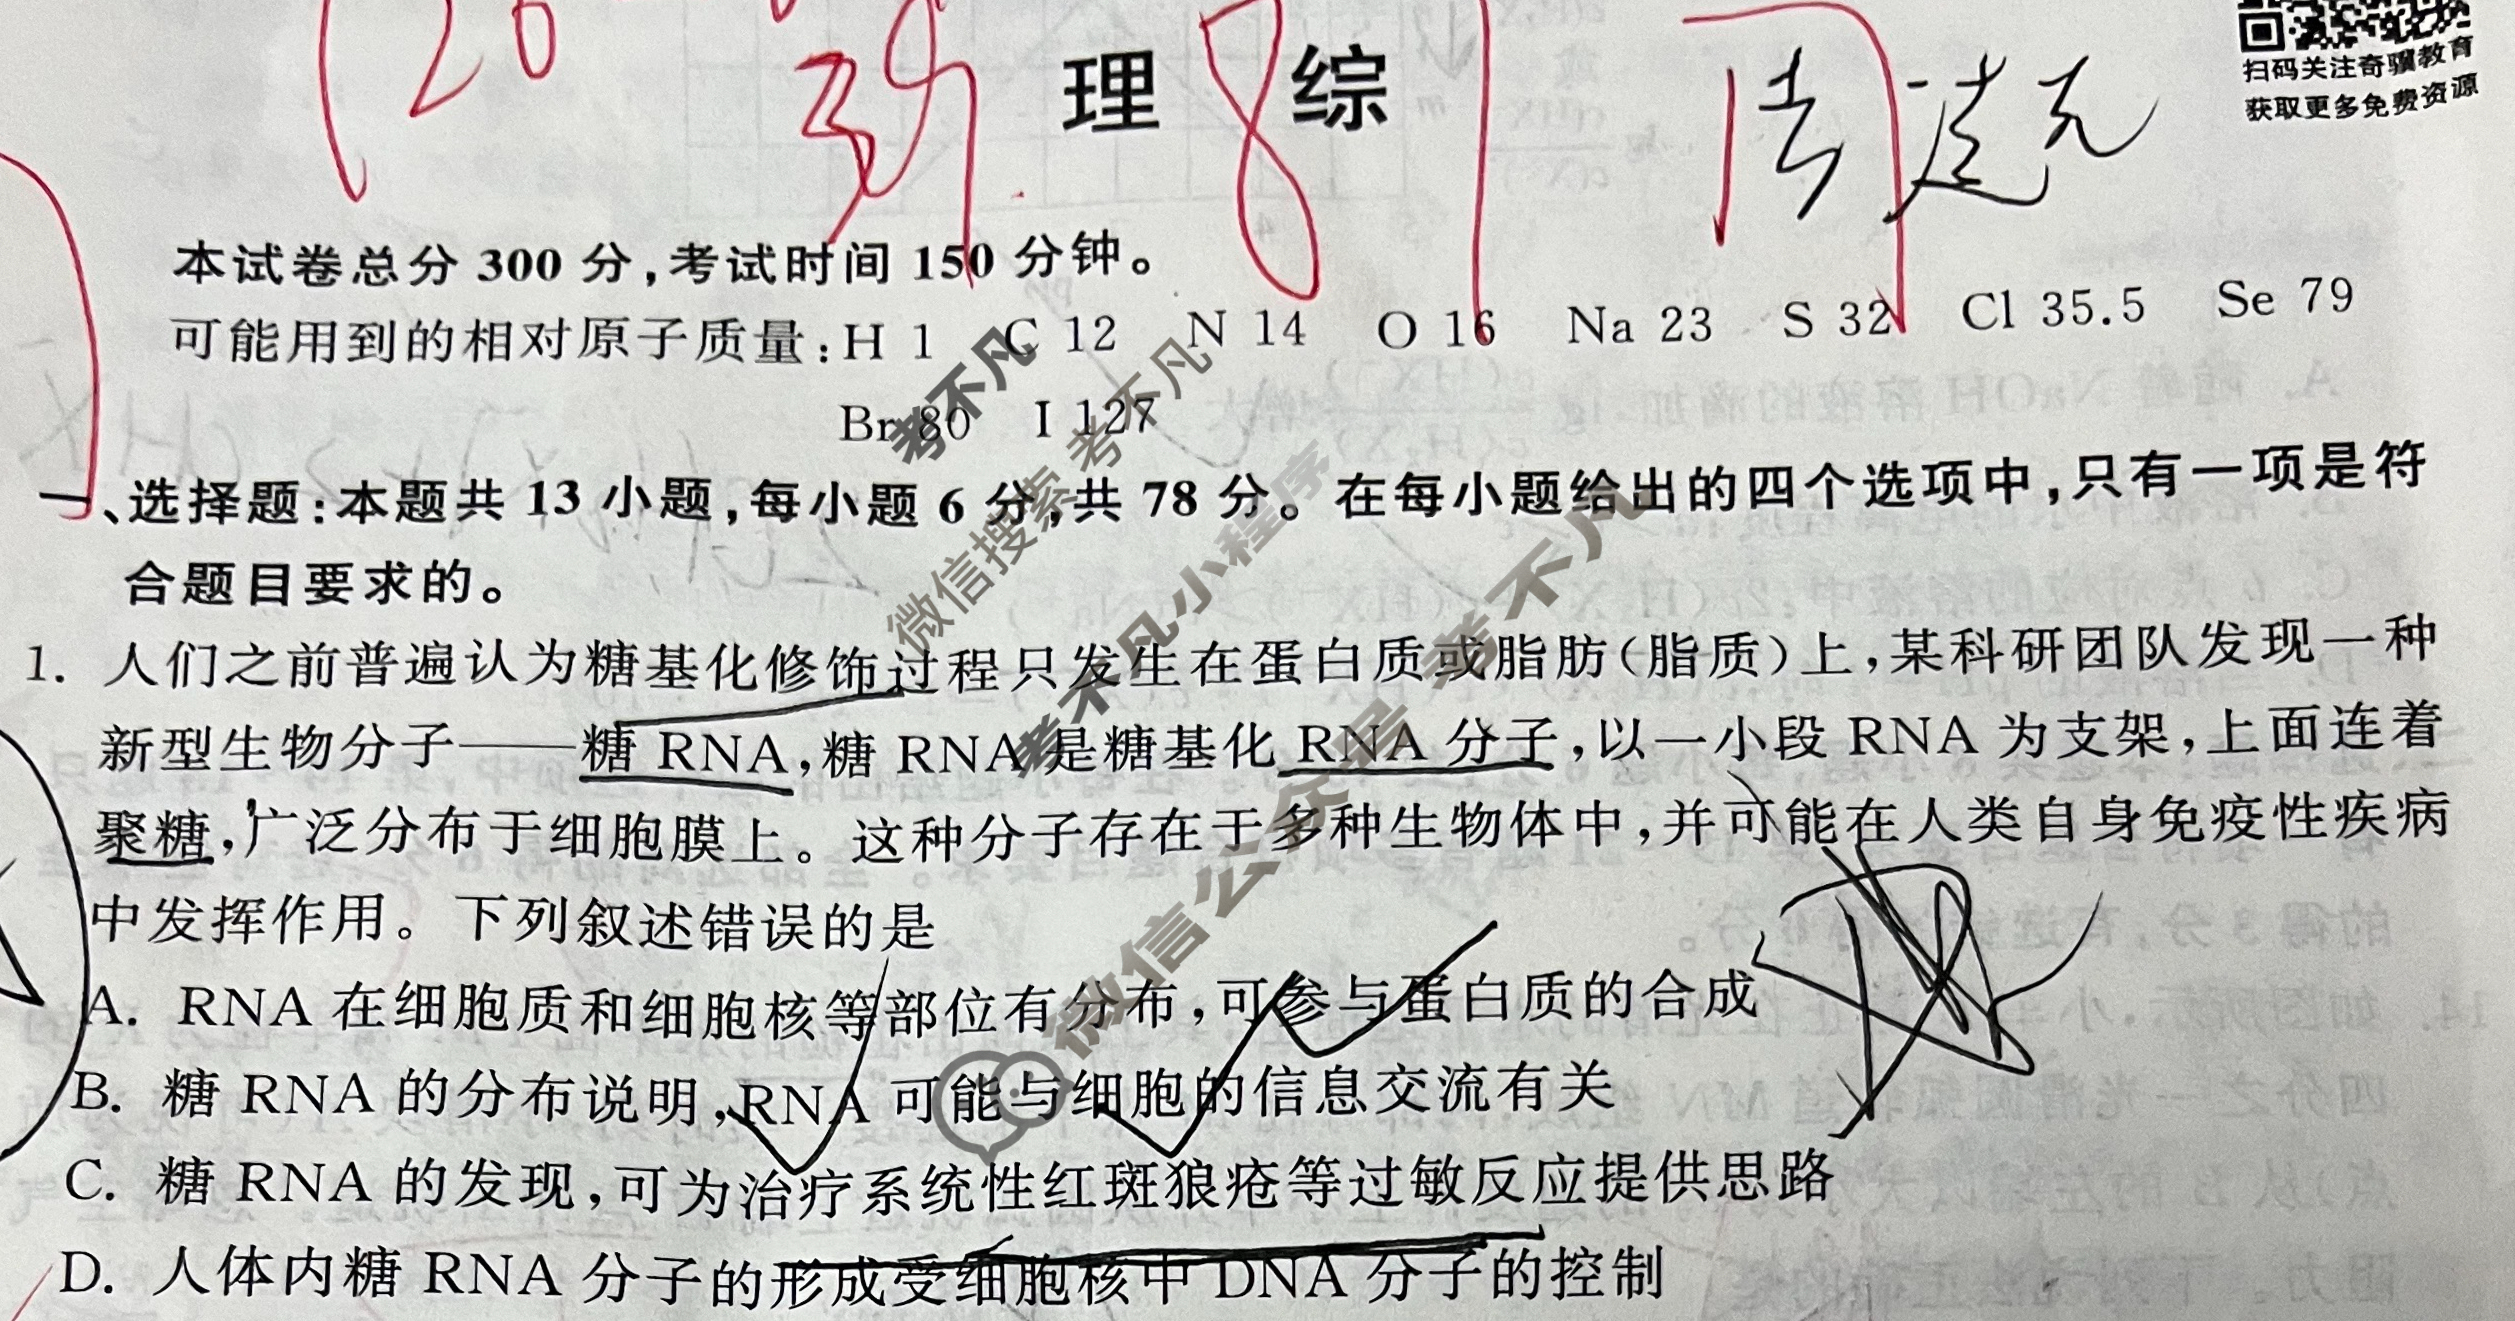 理 综
扫码关注奇骥教育
获取更多免费资源
本试卷总分 300 分,考试时间 150 分钟。
可能用到的相对原子质量:H 1 C 12 N 14 O 16 Na 23 S 32 Cl 35.5 Se 79
Br 80 I 127
一、选择题:本题共 13 小题,每小题 6 分,共 78 分。在每小题给出的四个选项中,只有一项是符
合题目要求的。
1. 人们之前普遍认为糖基化修饰过程只发生在蛋白质或脂肪(脂质)上,某科研团队发现一种
新型生物分子——糖 RNA,糖 RNA 是糖基化 RNA 分子,以一小段 RNA 为支架,上面连着
聚糖,广泛分布于细胞膜上。这种分子存在于多种生物体中,并可能在人类自身免疫性疾病
中发挥作用。下列叙述错误的是
A. RNA 在细胞质和细胞核等部位有分布,可参与蛋白质的合成
B. 糖 RNA 的分布说明,RNA 可能与细胞的信息交流有关
C. 糖 RNA 的发现,可为治疗系统性红斑狼疮等过敏反应提供思路
D. 人体内糖 RNA 分子的形成受细胞核中 DNA 分子的控制
考不凡
微信搜索 考不凡
考不凡小程序
微信公众号 考不凡